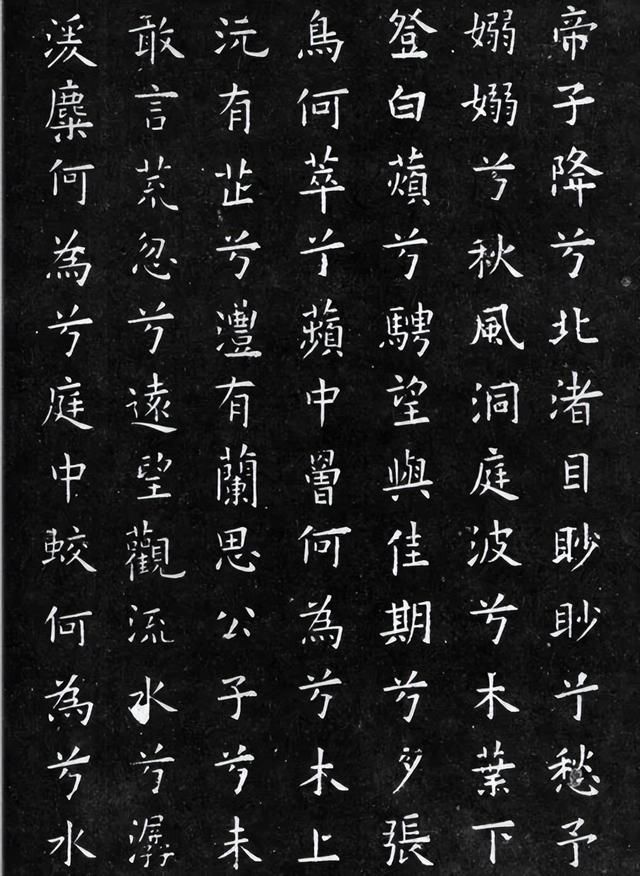 帝子降兮北渚目眇眇兮愁予
嫋嫋兮秋風洞庭波兮木葉下
登白薠兮騁望與佳期兮夕張
鳥何萃兮蘋中罾何為兮木上
沅有芷兮澧有蘭思公子兮未
敢言荒忽兮遠望觀流水兮潺
湲麋何為兮庭中蛟何為兮水